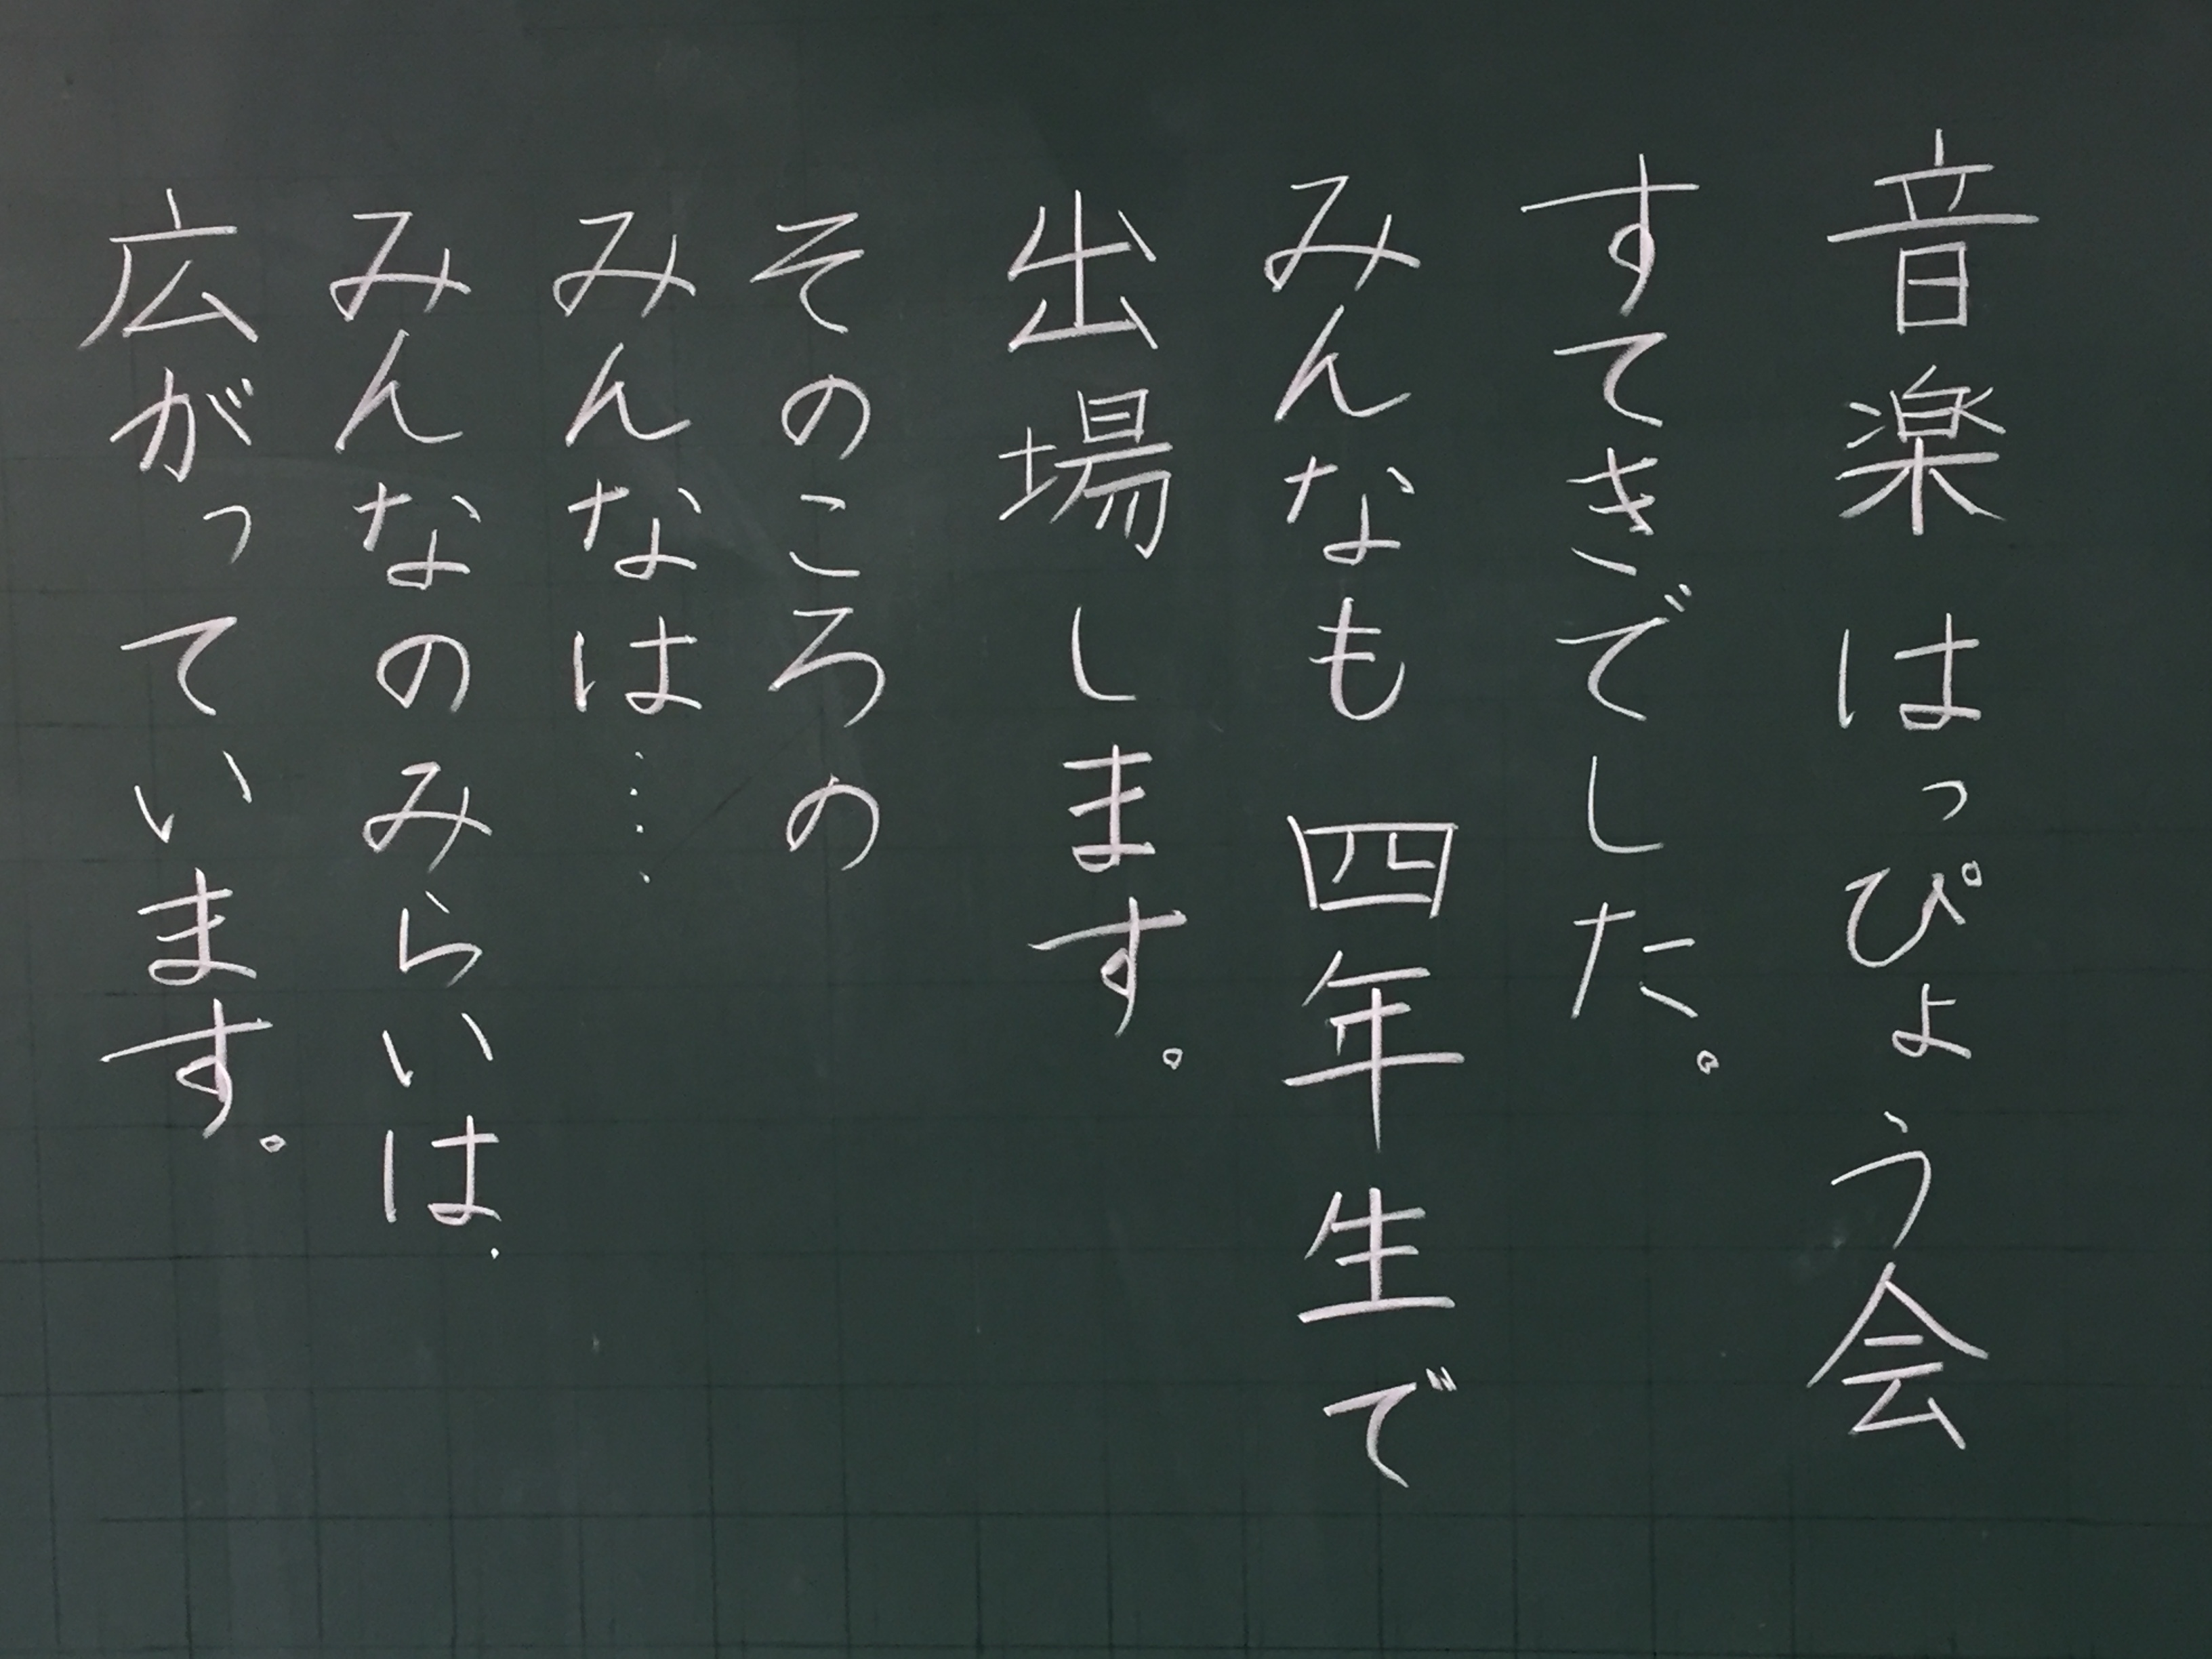 音楽はっぴょう会
すてきでした。
みんなも四年生で
出場します。
そのころの
みんなは……
みんなのみらいは、
広がっています。